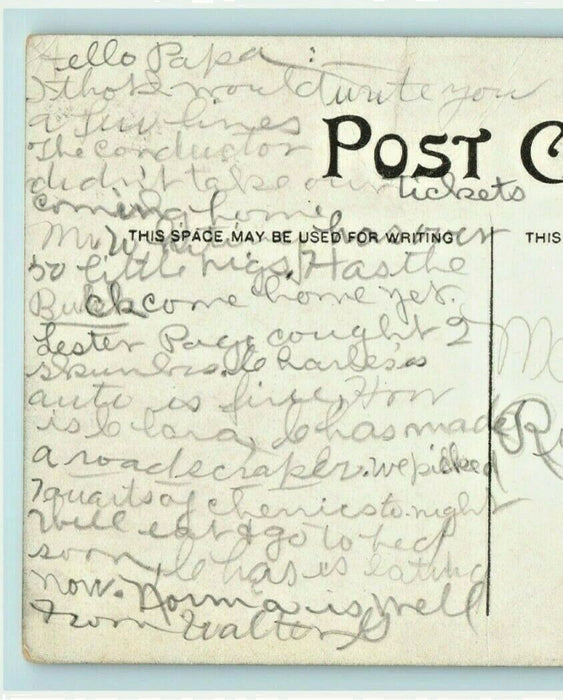 Hello Papa:
I thot I would write you
a few lines
The conductor
POST C
didn't take our tickets
coming home
THIS SPACE MAY BE USED FOR WRITING
THIS
Mr. has over
50 little pigs. Has the
Buick come home yet.
Lester Page cought 2
skunks. Charles's
auto is fine, How
is Clara, Chas made
a roadscraper. we picked
7 quarts of cherries to-night
Will eat & go to bed
soon, Chas is eating
now. Norma is well
From Walter G